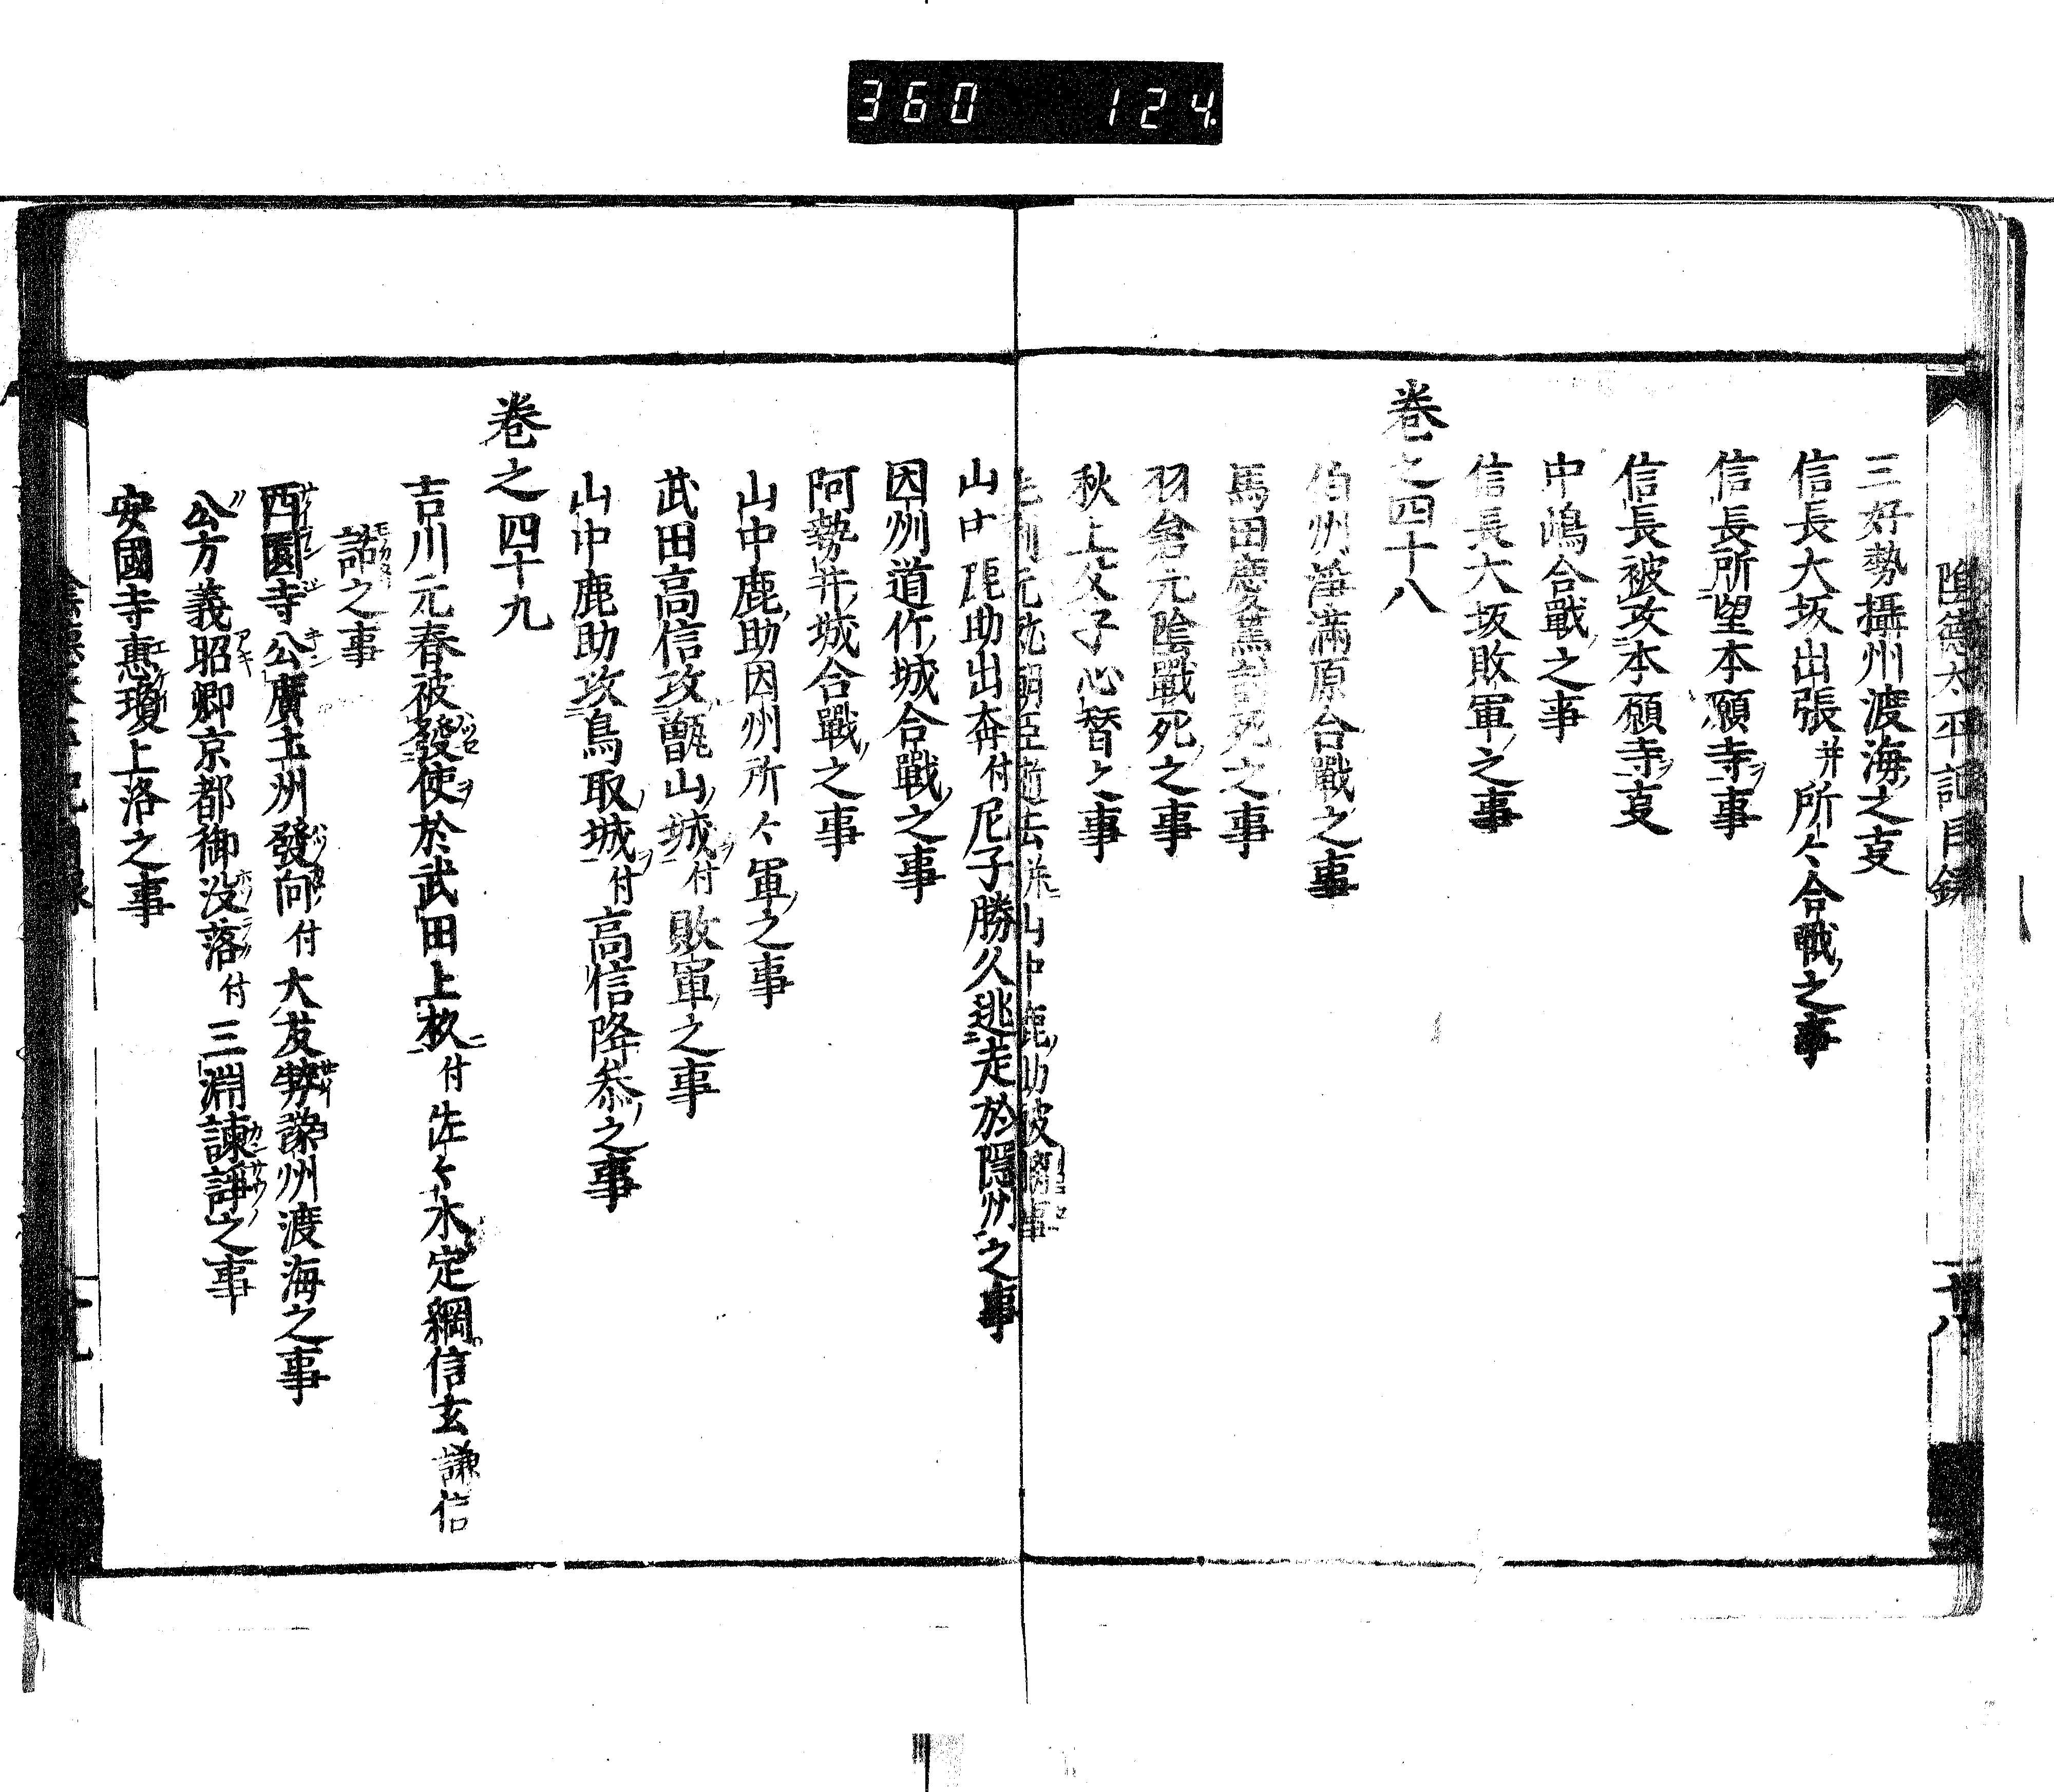 360 124
陰徳太平記目録
三好勢攝州渡海之叓
信長大坂出張并所々合戰之事
信長所望本願寺ヲ事
信長被攻本願寺ヲ叓
中嶋合戰之事
信長大坂敗軍之事
卷之四十八
伯州淨滿原合戰之事
馬田慶篤討死之事
羽倉元陰戰死之事
秋上父子心替之事
毛利元就朝臣逝去 山中鹿助被 事
山中鹿助出奔付尼子勝久逃走於隱州之事
因州道竹城合戰之事
阿勢井城合戰之事
山中鹿助因州所々軍之事
武田高信攻甑山城付敗軍之事
山中鹿助攻鳥取城付高信降參之事
卷之四十九
吉川元春被發使於武田上杉付佐々木定綱信玄謙信
詣之事
西園寺公廣土州發向付大友勢豫州渡海之事
公方義昭卿京都御没落付三淵諫諍之事
安國寺惠瓊上洛之事